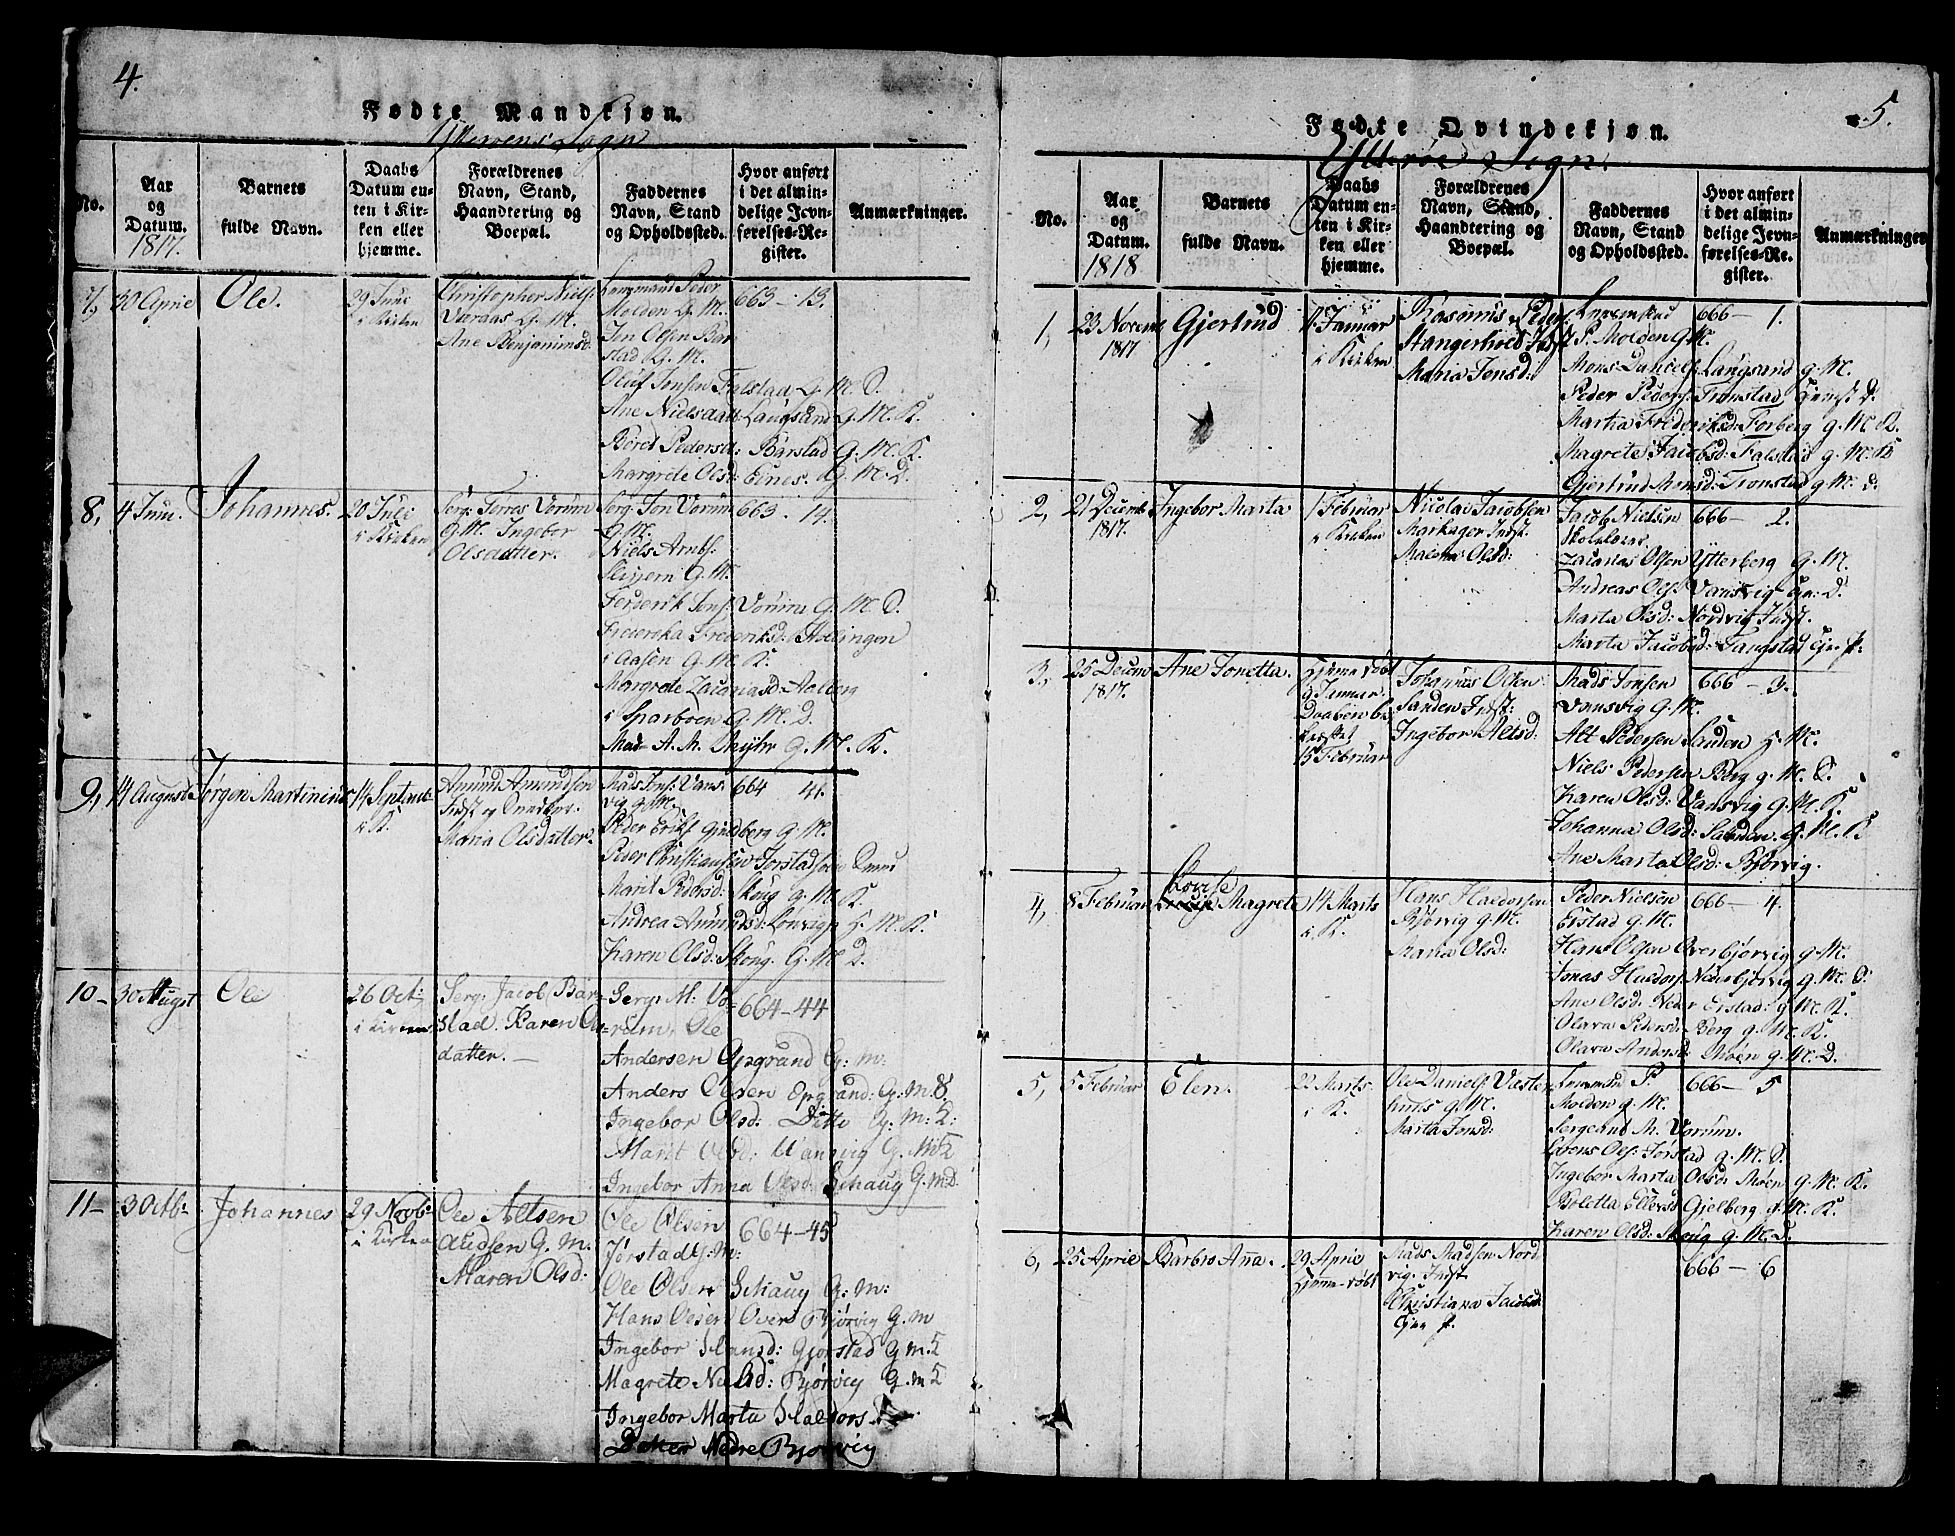 4.
Fødte Mandkjøn.
Sogn
No.
Aar og Datum.
1817.
Barnets fulde Navn.
Daabs Datum enten i Kirken eller hjemme.
Forældrenes Navn, Stand, Haandtering og Boepæl.
Faddernes Navn, Stand og Opholdssted.
Hvor anført i det almindelige Jevnførelses-Register.
Anmærkninger.
7, 30 April
Ole.
29 Juni
i Kirken
Christopher Niels:
G. M.
Ane Benjaminsd:
Peder
Molden G. M.
Jon Olsen Bar
stad G. M.
Oluf Jonsen Falstad G. M. S.
Ane Nielsdatt: Langsand G. M. K.
Beret Pedersd: Barstad G. M. K.
Margrete Olsd: Eines. G. M. D.
663 - 13.
8, 4 Juni.
Johannes.
20 Juli
i Kirken
Serg: Torres Vorum
G. M. Ingebor
Olsdatter.
Serg. Jon Vorum
G. M.
Niels Arnts:
G. M.
Jons: Vorum G. M. S.
Frederiksd:
i Aasen G. M. K.
Margrete Zacariasd: Aalberg
i Sparboen G. M. D.
Mad- A. M. G. M. K.
663. 14.
9, 14 August
Jørgen Martinius
14 Septemb
i K.
Amund Amundsen
Indst og
Maria Olsdatter.
Mads Jons: Vans-
vig G. M.
Peder Eriks: G. M.
Peder Christiansen Jorstad
Marit Pedersd: Skoug G. M. K.
Andrea Amundsd: H. M. K.
Karen Olsd: Skoug. G. M. D.
664 41.
10- 30 Augst
Ole
26 Oct:
i Kirken
Serg: Jacob Bar-
stad. Karen Ols
datter. —
Serg: M: Vo=
=rum, Ole
Andersen Opgrand G: M:
Anders Olsen Opgrand: G: M: S.
Ingebor Olsd: Ditto G: M: K:
Marit Olsd: Vansvig G. M: K
Ingebor Anna Olsd: Schaug G. M D.
664-44
11- 3 Octb:
Johannes
29 Novb:
i Kirken
Ole Altsen
G. M.
Maren Olsd:
Ole Olsen
Jørstad G: M:
Ole Olsen Schaug G: M:
Hans Olsen Over Bjørvig G. M
Ingebor Hansd: Gjorstad G M. K
Magrete Nielsd: Bjørvig G. M K
Ingebor Marta Haldors
Datter Nedre Bjørvig
664-45
5.
Fødte Qvindekjøn.
Ytterøe Sogn.
No.
Aar og Datum.
1818
Barnets fulde Navn.
Daabs Datum enten i Kirken eller hjemme.
Forældrenes Navn, Stand, Haandtering og Boepæl.
Faddernes Navn, Stand og Opholdssted.
Hvor anført i det almindelige Jevnførelses-Register.
Anmærkninger
1, 23 Novemb
1817
Gjertrud
Januar
i Kirken
Rasmus Peders:
Hangerhold Indst
Maria Jonsd:
P. Molden G. M.
Mons Daniels: Langsand G. M.
Peder Peders: Tronstad D.
Martha Frederiksd: Forberg G. M. K.
Magrete Jacobsd: Falstad G. M. K
Gjertrud Monsd: Tronstad G M. D.
666- 1.
2, 21 Decemb
1817.
Ingebor Marta
1 Februar
i Kirken
Nicolai Jacobsen
Markager Indst.
Malena Olsd:
Jacob Nielsen
Skolelærer
Zacarias Olsen Ytterberg G. M.
Andreas Ols: Vansvig D.
Marta Olsd: Nordvig Indst.
Marta Jacobsd: Fangstad
666- 2.
3, 25 Decem
1817.
Ane Jonetta.
Hjemedøbt
9 Januar.
Daaben be
kræftet
15 Februar
Johannes Olsen
Sanden Indst:
Ingebor Altsd:
Mads Jonsen
Vansvig G. M.
Alt Pedersen Sanden H. M.
Niels Pedersen Berg G. M. S.
Karen Olsd: Vansvig G. M. K.
Johanna Olsd: Sanden G. M. K
Ane Marta Olsd: Bjørvig.
666 - 3.
4, 8 Februar
Lovise
Magrete
14 Marts
i K.
Hans Haldorsen
Bjørvig G. M.
Maria Olsd:
Peder Nielsen
Erstad G. M.
Hans Olsen Overbjørvig G. M.
Jonas Haldors: Nederbjørvig G. M. S.
Ane Olsd: Neder Erstad G M. K.
Olava Pedersd: Berg G. M. K.
Olava Andersd: Moen G. M. D.
666- 4.
5, 5 Februar
Elen.
22 Marts
i K.
Ole Daniels: Vester
huus G. M.
Marta Jonsd:
P.
Molden G. M.
Sergeant M. Vorum.
Lorens Ols: Jorstad G. M. S.
Ingebor Marta Olsd: Moen G. M. K.
Boletta Ellevsd: Gjelberg G. M. K.
Karen Olsd: Skoug G. M. D.
666- 5
6, 25 April
Barbro Anna.
29 April
Hjeme-døbt
Mads Madsen Nord
vig. Indst.
Christiana Jacobsd:
666- 6